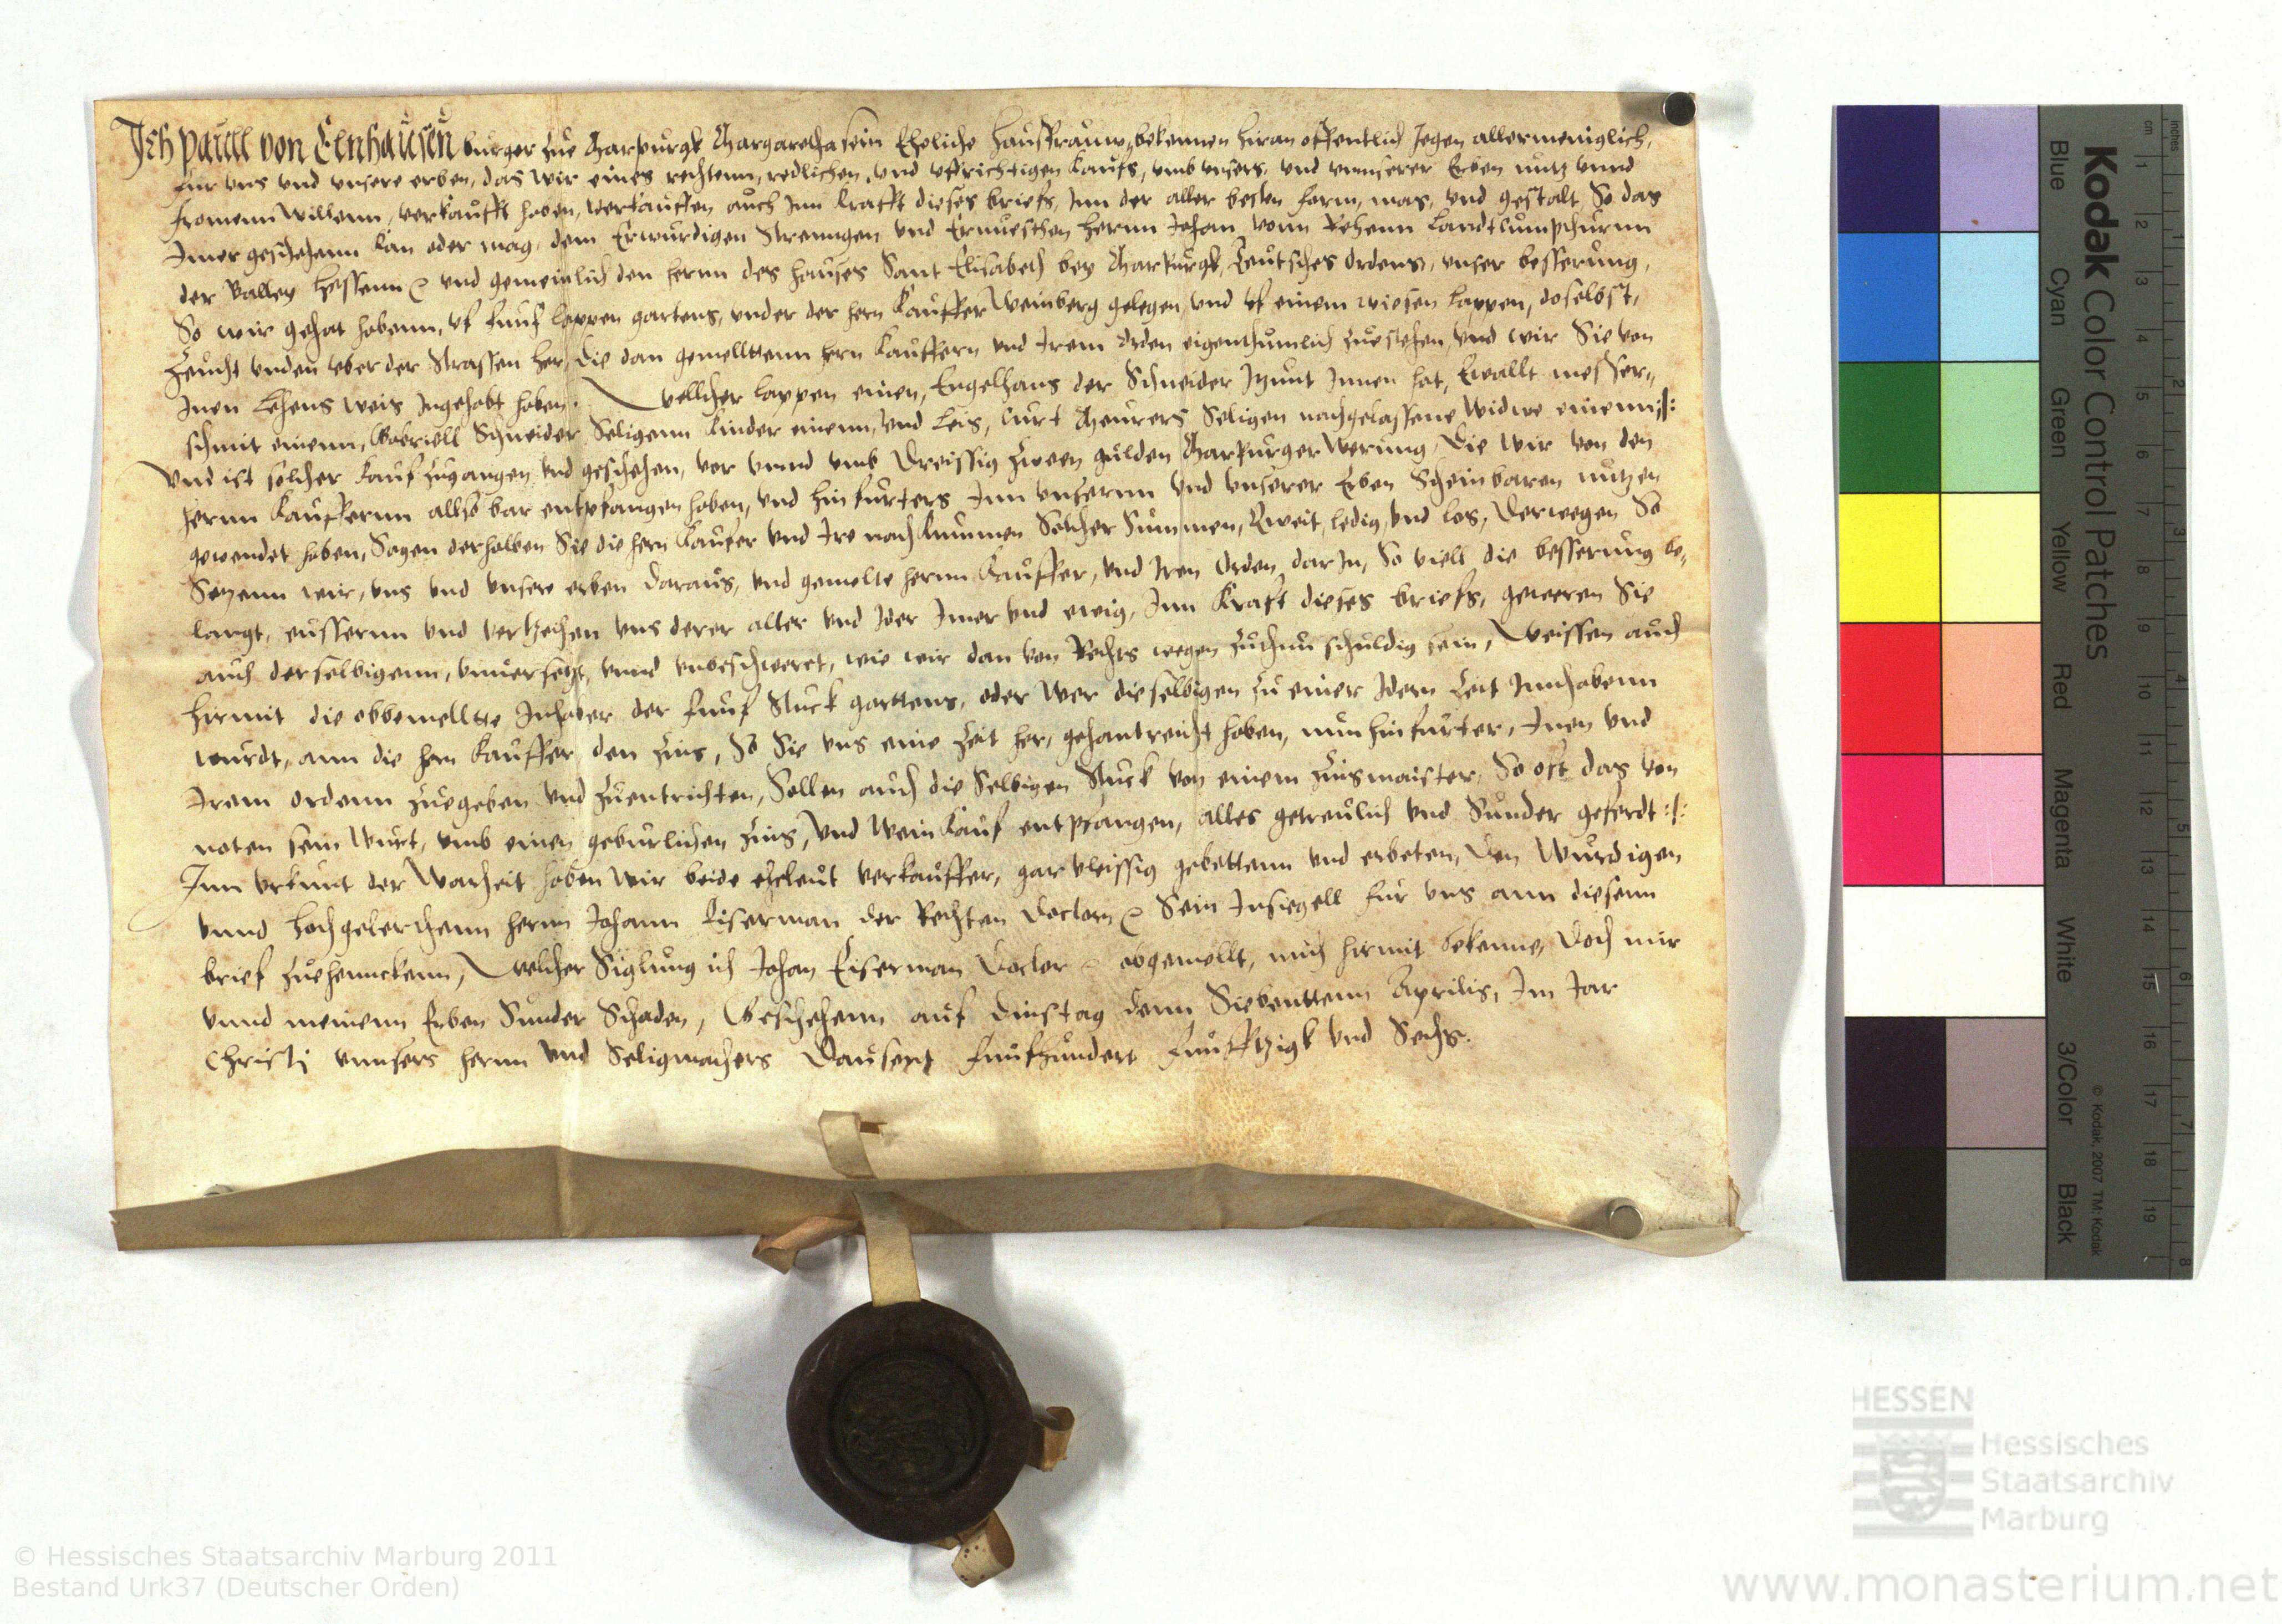 Ich Pauell von Elnhausen burger zue Marpurgk Margaretha sein Eheliche hausfrauw, bekennen hiran offentlich Jegen allermeniglich,
fur uns und unsere erben, das wir eines rechtenn, redlichen, und uffrichtigen kaufs, umb unsers, und unnserer Erben nutz unnd
fromenn willenn, verkaufft haben, verkauffen auch Inn krafft dieses briefs, Inn der aller besten form, mas, und gestalt, So das
Imer geschehenn kan oder mag, dem Erwurdigen Strenngen und Ernuesten hernn Johan vonn Rehenn Landtcumpthurnn
der Balley Hessenn und gemeinlich den hernn des hauses Sant Elisabeth bey Marpurgk, Teutsches Ordens, unser besserung,
So wir gehat habenn, uf funf lappen gartens, under der hern Kauffer Weinberg gelegen, und uf einem wiesen lappen, doselbst,
Zeucht unden uber der Strassen her, die dan gemellttenn hern kauffern und Irem Orden eigenthumlich zuestehen, und wir Sie von
Inen Lehens weis Ingehabt haben. Wellcher lappen einen, Engelhans der Schneider Itzunt Innen hat, Ewallt messer,,
schmit einenn, Gabriell Schneider Seligenn kinder einenn, und Leis, Curt Meurers Seligen nachgelassene Widwe einenn :/:
Und ist solcher kauf zugangen und geschehen, vor unnd umb Dreissig zween gulden Marpurger Werung, Die wir von den
hernn Kauffernn allso bar entpfangen haben, und hinfurters Inn unsernn und unserer Erben Scheinbaren nutzen
gewendet haben, Sagen derhalben Sie die hern Kaufer und Ire nachkummen Solcher Summen, Queit, ledig, und los, Derwegen So
Setzenn wir, uns und unsere erben daraus, und gemelte hernn Kauffer, und Iren Orden, dar In, So viell die besserung be,,
langt, eussernn und vertzechen uns derer aller und Ider Imer und ewig, Inn Kraft dieses briefs, geweren Sie
auch derselbigenn, unuersetzt, unnd unbeschweret, wie wir dan von Rechts wegen zuthun schuldig sein, Weissen auch
hirmit die obbemellte Inhaber der funf Stuck garttens, oder wer dieselbigen zu einer Idern Zeit Innhabenn
wurdt, ann die hern Kauffer, den Zins, So Sie uns eine Zeit her, gehantreicht haben, nun hinfurter, Inen und
Irem ordenn zuegeben und zuentrichten, Sollen auch die Selbigen Stuck von einem Zinsmaister, So oft das von
noten sein wurt, umb einen geburlichen Zins, und Wein kauf entpfangen, alles getreulich und Sunder geferdt :/:
Inn urkunt der Warheit haben wir beide eheleut verkauffer, gar vleissig gebettenn und erbeten, Den Wurdigen
unnd hochgelerthenn hernn Johann Eiserman der Rechten Doctorn Sein Insiegell fur uns ann diesenn
brief zuehennckenn, Welcher Siglung ich Johan Eiserman Doctor obgemellt, mich hirmit bekenne, Doch mir
unnd meinenn Erben Sunder Schaden, Geschehenn auf Dinstag denn Siebenttenn Aprilis, Im Jar
Christi unnsers hernn und Seligmachers Dausent funfhundert funfftzigk und Sechs.
Kodak Color Control Patches
Blue Cyan Green Yellow Red Magenta White 3/Color Black
© Kodak, 2007 TM: Kodak
cm 1 2 3 4 5 6 7 8 9 10 11 12 13 14 15 16 17 18 19
inches 1 2 3 4 5 6 7 8
HESSEN
Hessisches
Staatsarchiv
Marburg
© Hessisches Staatsarchiv Marburg 2011
Bestand Urk37 (Deutscher Orden)
www.monasterium.net